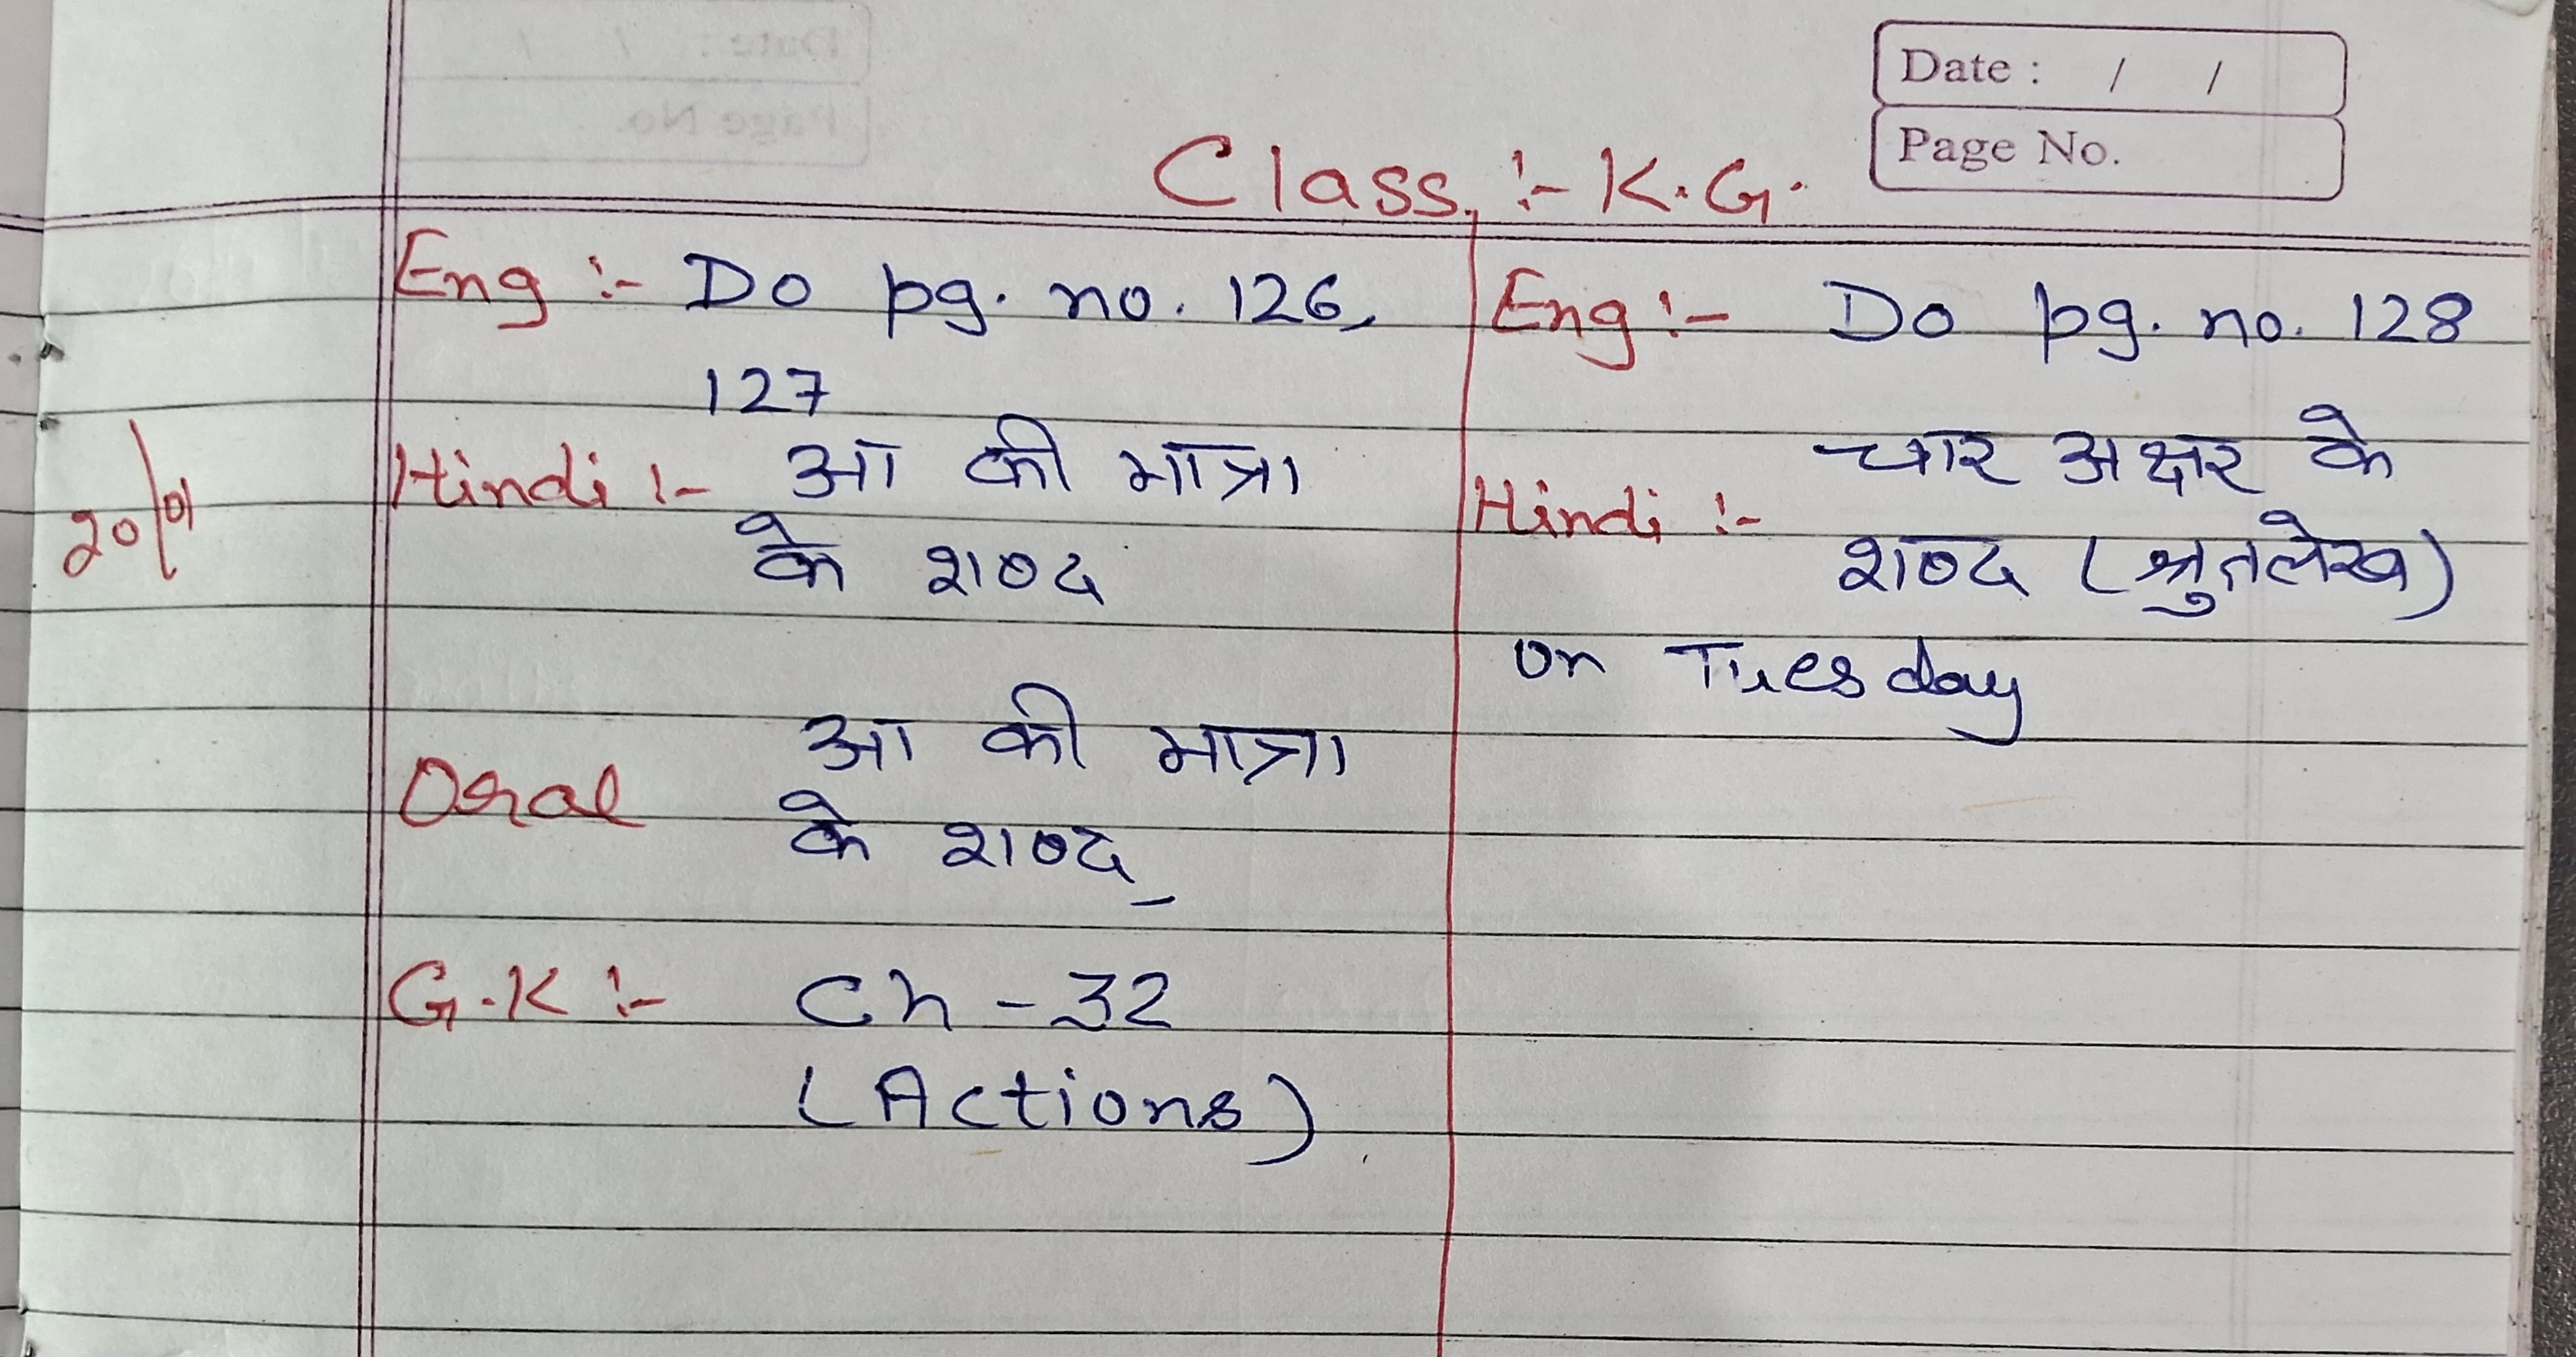 Date : / /
Page No.
Class :- K.G.
Eng :- Do pg. no. 126,
127
Hindi :- आ की मात्रा
के शब्द
Oral आ की मात्रा
के शब्द
G.K :- Ch - 32
(Actions)
Eng :- Do pg. no. 128
Hindi :- चार अक्षर के
शब्द (श्रुतलेख)
on Tuesday